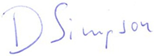 D Simpson